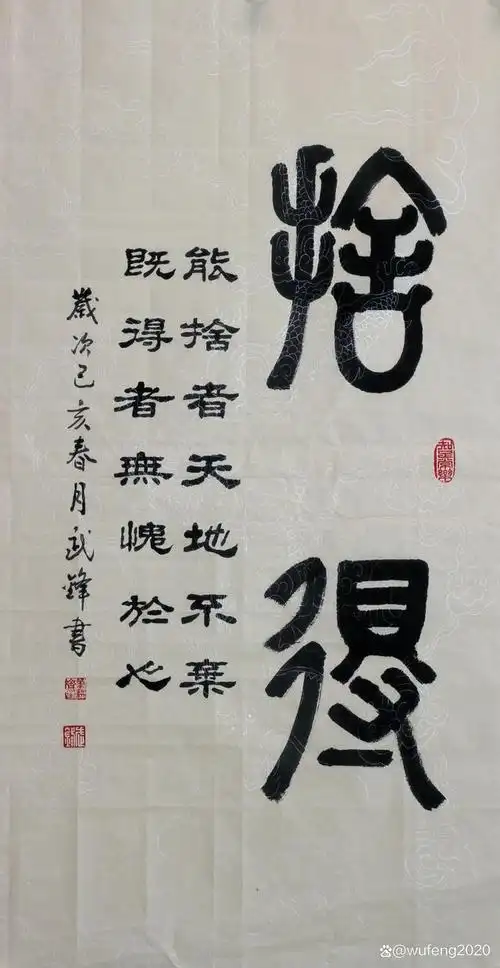 捨得
能捨者天地不棄
既得者無愧於心
歲次己亥春月武鋒書
@wufeng2020